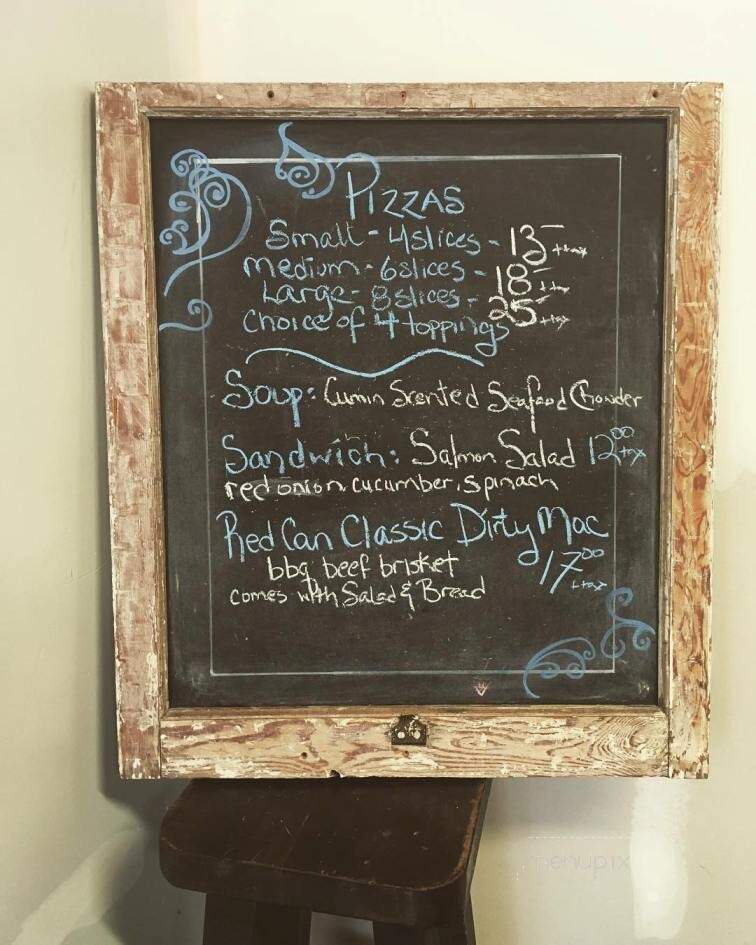 Pizzas
Small - 4 slices - 13- +tax
Medium - 6 slices - 18- +tax
Large - 8 slices - 25- +tax
Choice of 4 toppings
Soup: Cumin Scented Seafood Chowder
Sandwich: Salmon Salad 12.00 +tax
red onion, cucumber, spinach
Red Can Classic Dirty Mac
bbq beef brisket 17.00 +tax
comes with Salad & Bread
menupix